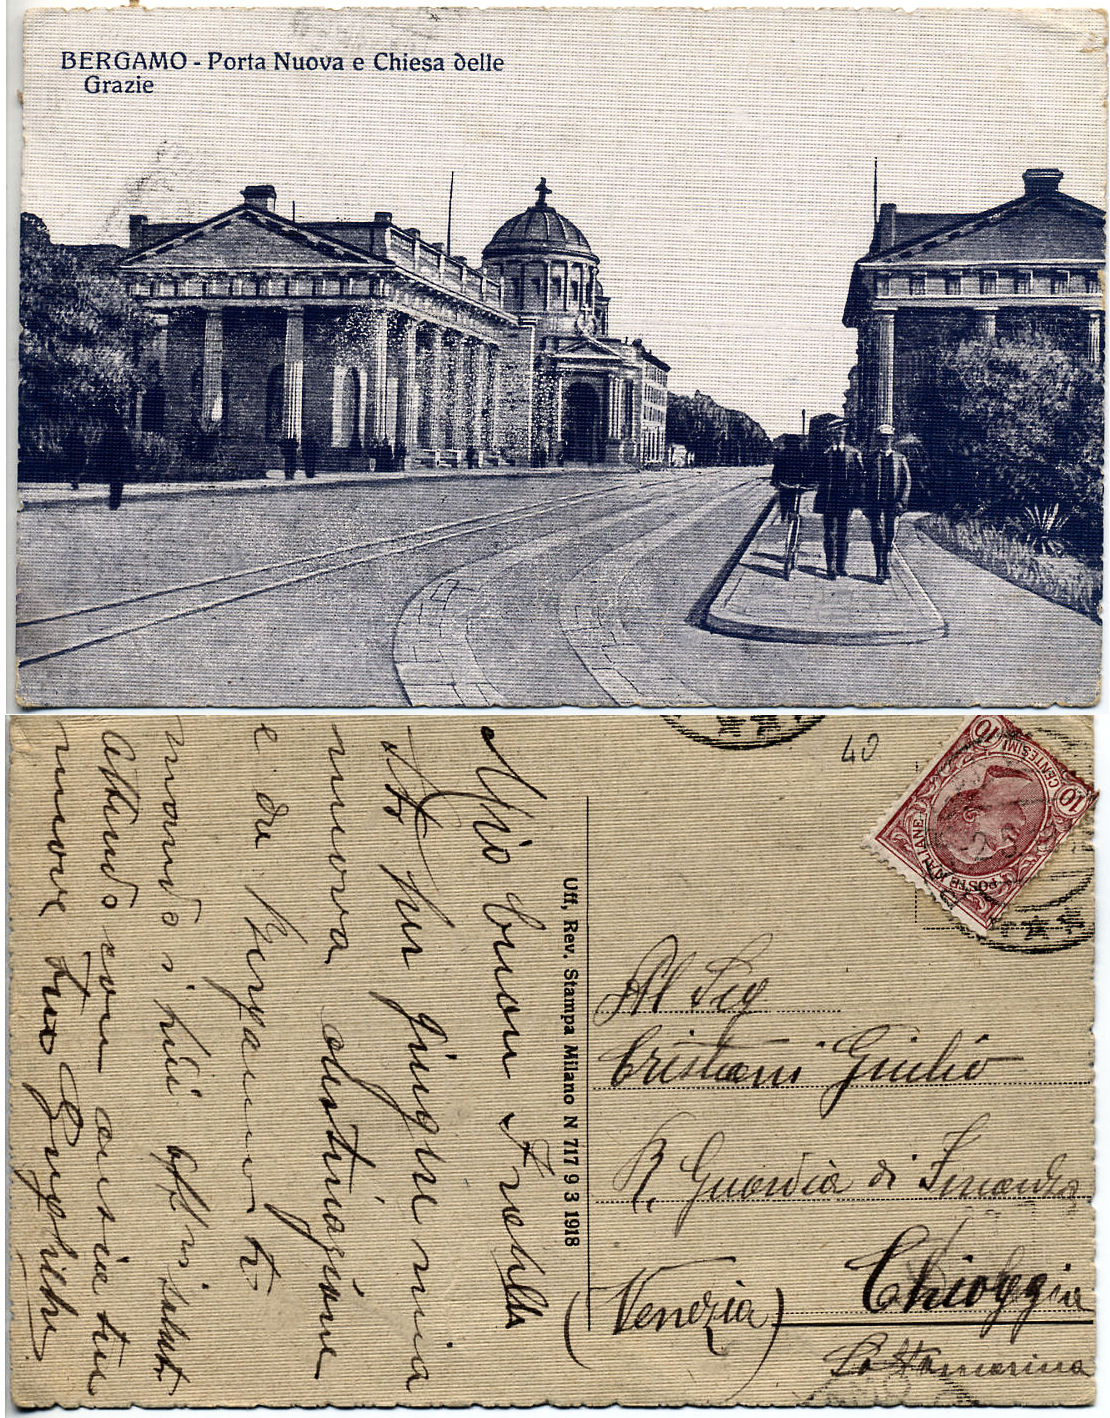 BERGAMO - Porta Nuova e Chiesa delle
Grazie
Mio buon Fratello
per giugne mia
nuova destinazione
e da Bergamo ti
mando i più affi saluti
Attendo con ansia tue
nuove tuo
Uff. Rev. Stampa Milano N 717 9 3 1918
40
10 CENTESIMI 10
POSTE ITALIANE
Al Sig
Cristiani Giulio
R. Guardia di Finanza
Chioggia
(Venezia)